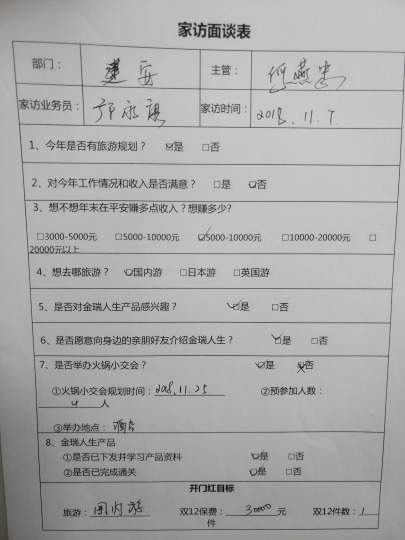 家访面谈表
部门： 建安 主管： 何燕忠
家访业务员： 邝永康 家访时间： 2018.11.7
1、今年是否有旅游规划？ ☑是 □否
2、对今年工作情况和收入是否满意？ □是 ☑否
3、想不想年末在平安赚多点收入？想赚多少?
□3000-5000元 □5000-10000元 ☑5000-10000元 □10000-20000元 □
20000元以上
4、想去哪旅游？ ☑国内游 □日本游 □英国游
5、是否对金瑞人生产品感兴趣？ ☑是 □否
6、是否愿意向身边的亲朋好友介绍金瑞人生？ ☑是 □否
7、是否举办火锅小交会？ ☑是 ☒否
①火锅小交会规划时间：2018.11.25 ②预参加人数：
4 人
③举办地点： 酒店
8、金瑞人生产品
①是否已下发并学习产品资料 ☑是 □否
②是否已完成通关 ☑是 □否
开门红目标
旅游： 国内游 双12保费： 30000 元 双12件数：1
件